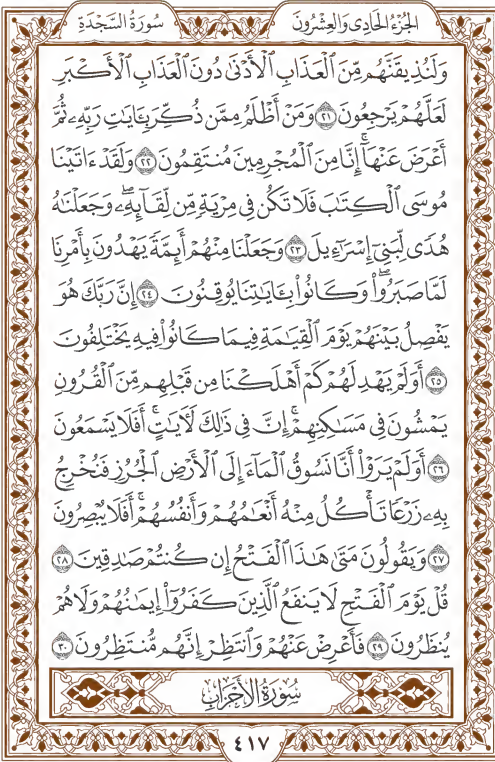 الجُزْءُ الحَادِى وَالعِشْرُونَ
سُورَةُ السَّجْدَةِ
وَلَنُذِيقَنَّهُم مِّنَ ٱلْعَذَابِ ٱلْأَدْنَىٰ دُونَ ٱلْعَذَابِ ٱلْأَكْبَرِ
لَعَلَّهُمْ يَرْجِعُونَ ٢١ وَمَنْ أَظْلَمُ مِمَّن ذُكِّرَ بِـَٔايَٰتِ رَبِّهِۦ ثُمَّ
أَعْرَضَ عَنْهَآ ۚ إِنَّا مِنَ ٱلْمُجْرِمِينَ مُنتَقِمُونَ ٢٢ وَلَقَدْ ءَاتَيْنَا
مُوسَى ٱلْكِتَٰبَ فَلَا تَكُن فِى مِرْيَةٍ مِّن لِّقَآئِهِۦ ۖ وَجَعَلْنَٰهُ
هُدًى لِّبَنِىٓ إِسْرَٰٓءِيلَ ٢٣ وَجَعَلْنَا مِنْهُمْ أَئِمَّةً يَهْدُونَ بِأَمْرِنَا
لَمَّا صَبَرُوا۟ ۖ وَكَانُوا۟ بِـَٔايَٰتِنَا يُوقِنُونَ ٢٤ إِنَّ رَبَّكَ هُوَ
يَفْصِلُ بَيْنَهُمْ يَوْمَ ٱلْقِيَٰمَةِ فِيمَا كَانُوا۟ فِيهِ يَخْتَلِفُونَ
٢٥ أَوَلَمْ يَهْدِ لَهُمْ كَمْ أَهْلَكْنَا مِن قَبْلِهِم مِّنَ ٱلْقُرُونِ
يَمْشُونَ فِى مَسَٰكِنِهِمْ ۚ إِنَّ فِى ذَٰلِكَ لَـَٔايَٰتٍ ۖ أَفَلَا يَسْمَعُونَ
٢٦ أَوَلَمْ يَرَوْا۟ أَنَّا نَسُوقُ ٱلْمَآءَ إِلَى ٱلْأَرْضِ ٱلْجُرُزِ فَنُخْرِجُ
بِهِۦ زَرْعًا تَأْكُلُ مِنْهُ أَنْعَٰمُهُمْ وَأَنفُسُهُمْ ۖ أَفَلَا يُبْصِرُونَ
٢٧ وَيَقُولُونَ مَتَىٰ هَٰذَا ٱلْفَتْحُ إِن كُنتُمْ صَٰدِقِينَ ٢٨
قُلْ يَوْمَ ٱلْفَتْحِ لَا يَنفَعُ ٱلَّذِينَ كَفَرُوٓا۟ إِيمَٰنُهُمْ وَلَا هُمْ
يُنظَرُونَ ٢٩ فَأَعْرِضْ عَنْهُمْ وَٱنتَظِرْ إِنَّهُم مُّنتَظِرُونَ ٣٠
سُورَةُ الأَحْزَابِ
٤١٧